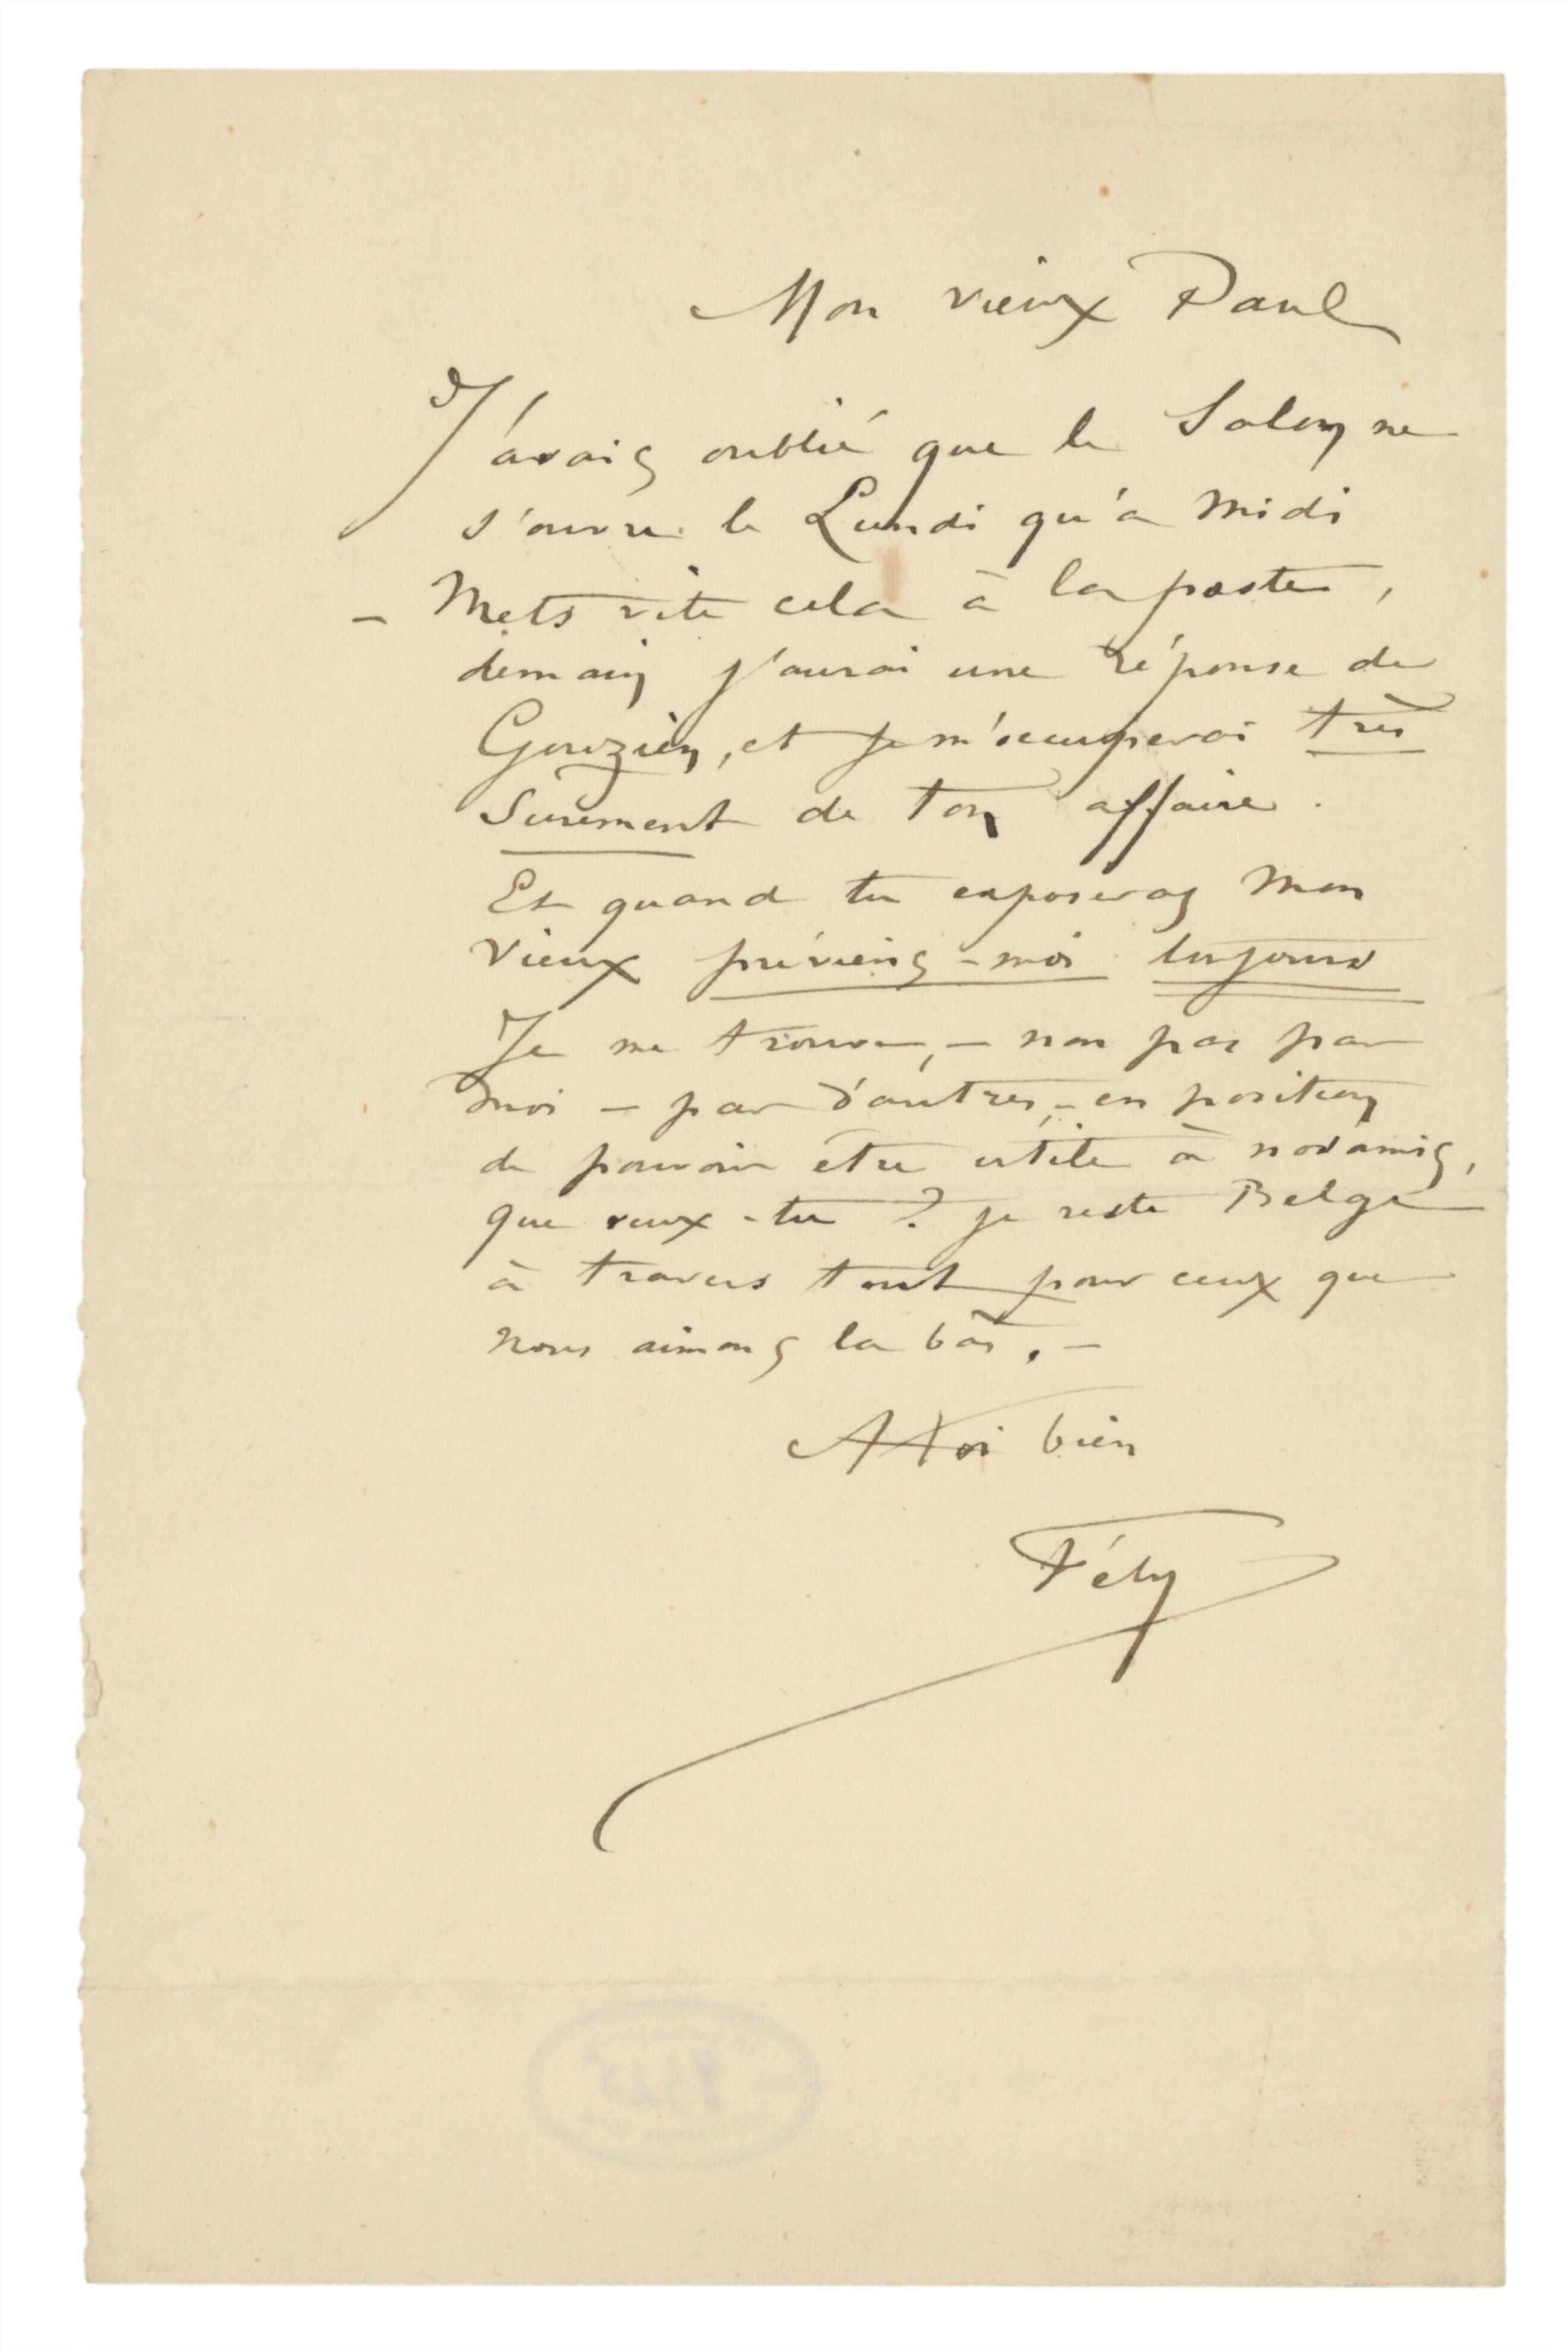 Mon vieux Paul
J'avais oublié que le Salon ne
s'ouvre le Lundi qu'a midi
– Mets vite cela à la poste,
demain j'aurai une réponse de
Gouzien, et je m'occuperai très
Surement de ton affaire.
Et quand tu exposeras mon
vieux préviens-moi toujours
Je me trouve, – non pas par
moi – par d'autres, – en position
de pouvoir etre utile à nos amis,
que veux-tu ? je reste Belge
à travers tout pour ceux que
nous aimons la bas. –
A toi bien
Fély